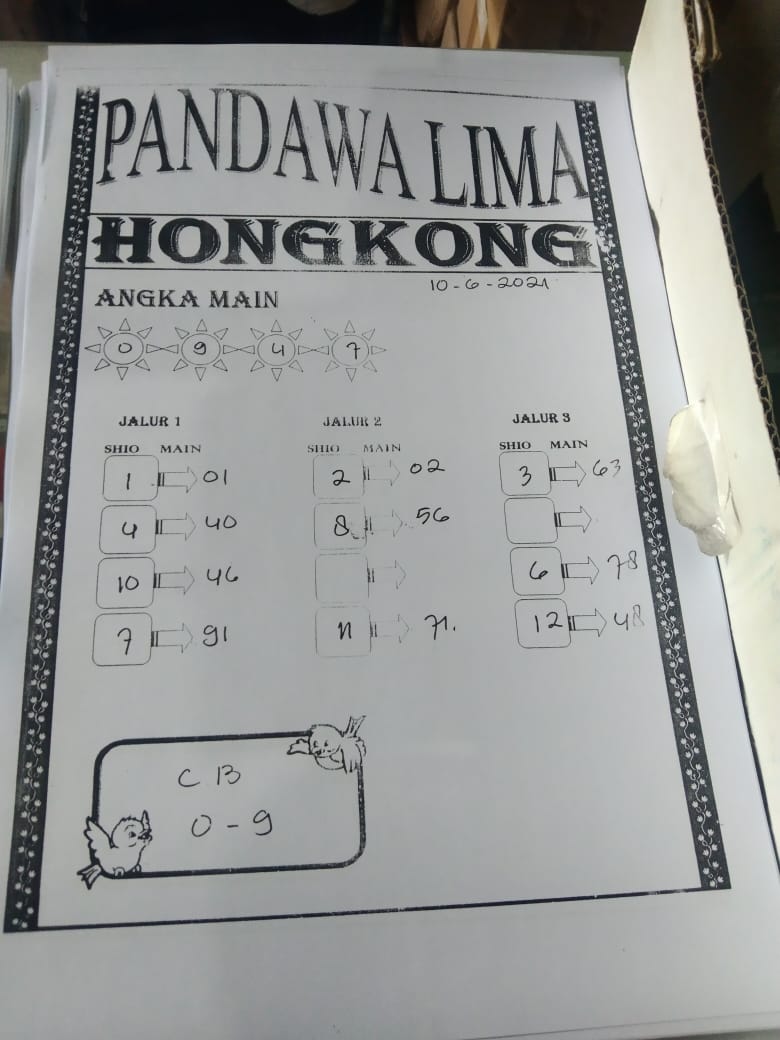 PANDAWA LIMA
HONGKONG
10-6-2021
ANGKA MAIN
0 9 4 7
JALUR 1 JALUR 2 JALUR 3
SHIO MAIN SHIO MAIN SHIO MAIN
1 01 2 02 3 63
4 40 8 56
10 46 6 78
7 91 11 71. 12 48
CB
0-9